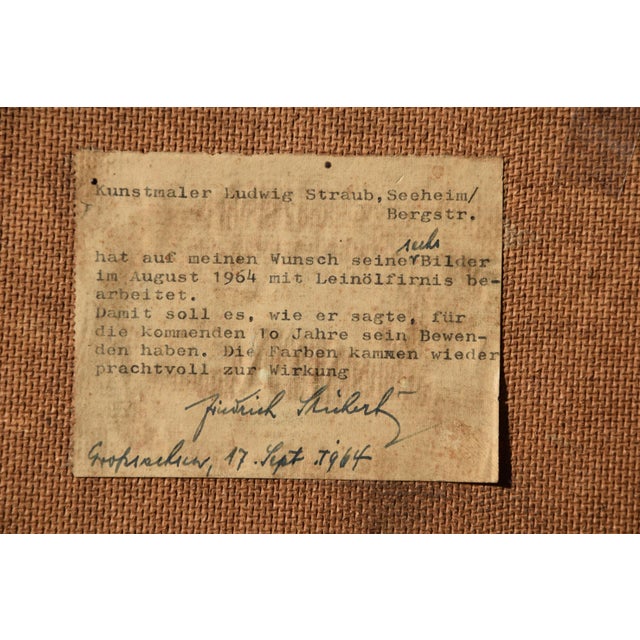 Kunstmaler Ludwig Straub, Seeheim/
Bergstr.
sechs
hat auf meinen Wunsch seine Bilder
im August 1964 mit Leinölfirnis be-
arbeitet.
Damit soll es, wie er sagte, für
die kommenden 10 Jahre sein Bewen-
den haben. Die Farben kammen wieder
prachtvoll zur Wirkung
Friedrich
Grossachsen, 17. Sept. 1964